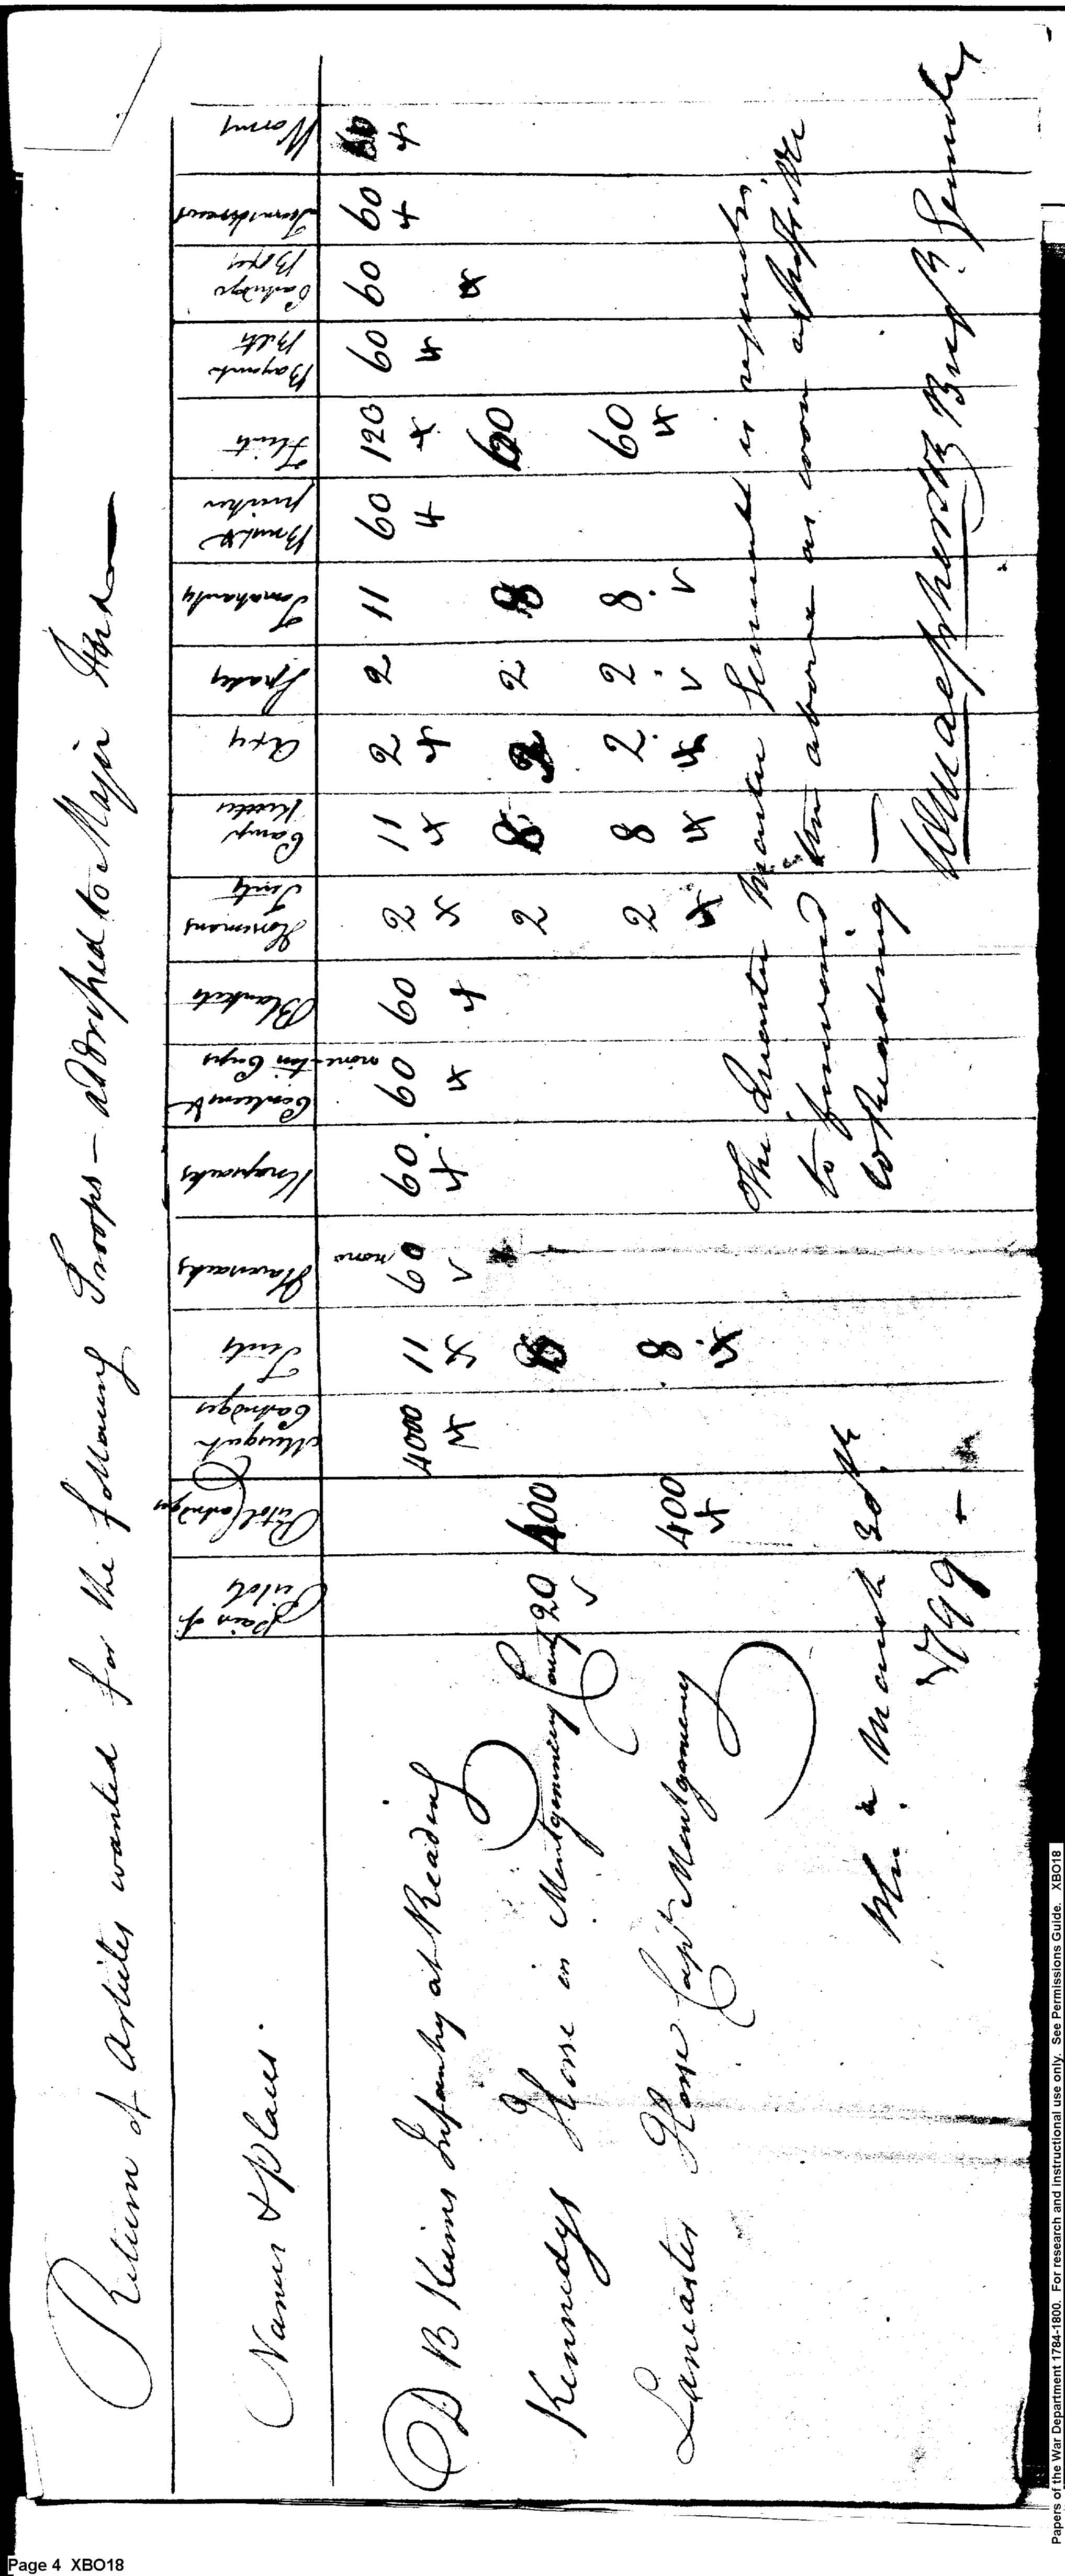 Return of Articles wanted for the following Troops - addressed to Major Ford
Names & places.
Pair of Pistols
Pistol Cartridges
Musquet Cartridges
Tents
Haversacks
Knapsacks
Canteens &
Blankets
Horsemans Tents
Camp Kettles
Axes
Spades
Tomahawks
Brush & picker
Flints
Bayonet Belts
Cartridge Boxes
Screwdrivers
Worms
D B Keims Infantry at Reading 4000 11 60 none 60. 60 60 2 11 2 2 11 60 120 60 60 60 60
Kennedys Horse in Montgomery County 20 400 8 2 8 2 2 8 60
Lancaster Horse Capt Montgomery 400 8 2 8 2. 2 8. 60
The Quarter Master General is requested
to forward the above as soon as possible
to Reading
Wm Macpherson Brigr. General
Phia. March 30th
1799
Page 4 XBO18
Papers of the War Department 1784-1800. For research and instructional use only. See Permissions Guide. XBO18